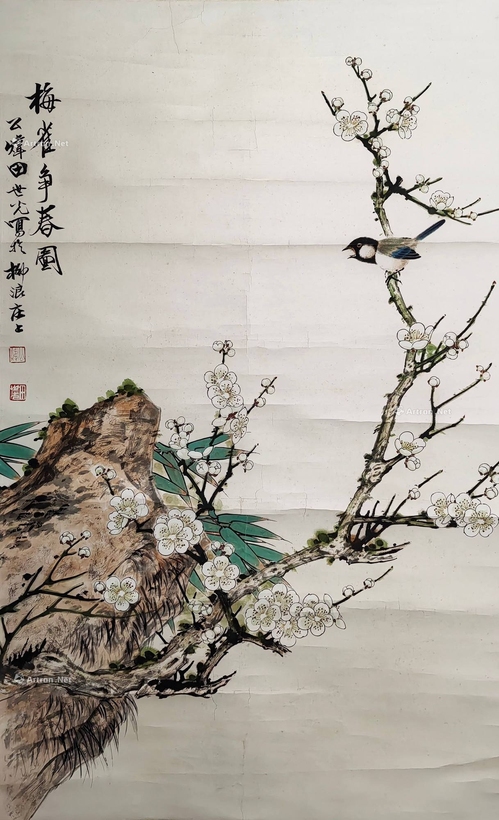 梅雀争春图
公炜田世光写於柳浪庄上
Artron.Net
Artron.Net
Artron.Net